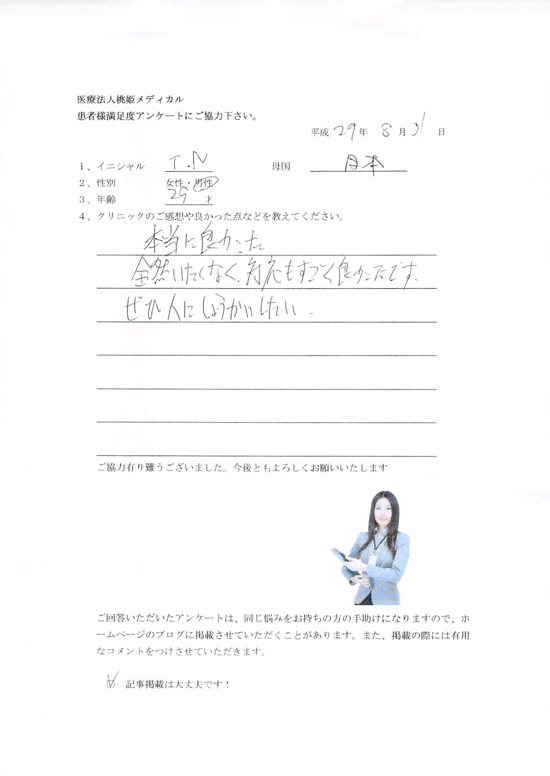 医療法人桃姫メディカル
患者様満足度アンケートにご協力下さい。
平成 29 年 8 月 31 日
1、イニシャル T.N 母国 日本
2、性別 女性・男性
3、年齢 29 才
4、クリニックのご感想や良かった点などを教えてください。
本当に良かった
全然いたくなく、対応もすごく良かったです。
ぜひ人にしょうかいしたい。
ご協力有り難うございました。今後ともよろしくお願いいたします
ご回答いただいたアンケートは、同じ悩みをお持ちの方の手助けになりますので、ホ
ームページのブログに掲載させていただくことがあります。また、掲載の際には有用
なコメントをつけさせていただきます。
記事掲載は大丈夫です！